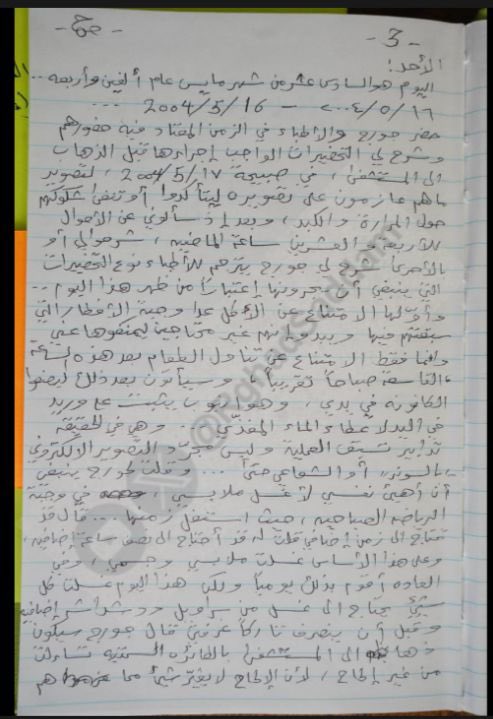 - 3 -
- ص٣ -
الأحد :
اليوم هو السادس عشر من شهر مايس عام ألفين وأربعه ..
٢٠٠٤/٥/١٦ - 2004/5/16 ...
حضر جورج والأطباء في الزمن المعتاد فيه حضورهم
وشرح لي التحضيرات الواجب إجراءها قبل الذهاب
الى المستشفى ، في صبيحة 2004/5/17 ، لتصوير
ماهم عازمون على تصويره ليتأكدوا أو تنفى شكوكهم
حول المرارة والكبد ، وبعد إذ سألوني عن الأحوال
للأربعة والعشرين ساعة الماضيه ، شرحوا لي أو
بالأحرى شرح لي جورج يترجم للأطباء نوع التحضيرات
التي ينبغي أن يجرونها إعتباراً من ظهر هذا اليوم ..
وأولها الامتناع عن الأكل عدا وجبة الأفطار التي
سبقتهم فيها ويبدو أنهم غير محتاجين ليمنعوها عني
وانما فقط الامتناع عن تناول الطعام بعد هذه الساعة
التاسعة صباحاً تقريباً ، وسيأتون بعد ذلك ليضعوا
الكانونه في يدي ، وهو انبوب يثبت على وريد
في اليد لإعطاء الماء المغذي .. وهي في الحقيقة
تدابير تسبق العملية وليس مجرد التصوير الالكتروني
بالسونر ، أو الشعاعي حتى ... وقلت لجورج ينبغي
أن أهيئ نفسي لأغسل ملابسي ، في وجبة
الرياضه الصباحيه ، حيث استغل زمنها .. قال قد
تحتاج الى زمن إضافي قلت له قد أحتاج الى نصف ساعة إضافيه ،
وعلى هذا الأساس غسلت ملابسي وجسمي وفي
العاده أقوم بذلك يومياً ولكن هذا اليوم غسلت كل
شيئ يحتاج الى غسل من سراويل ودشداشه إضافيه
وقبل أن ينصرف تاركاً غرفتي قال جورج سيكون
ذهابك الى المستشفى بالطائره السمتيه تساءلت
من غير إلحاح ، لأن الإلحاح لا يغير شيئاً مما هم
@RghadSaddam